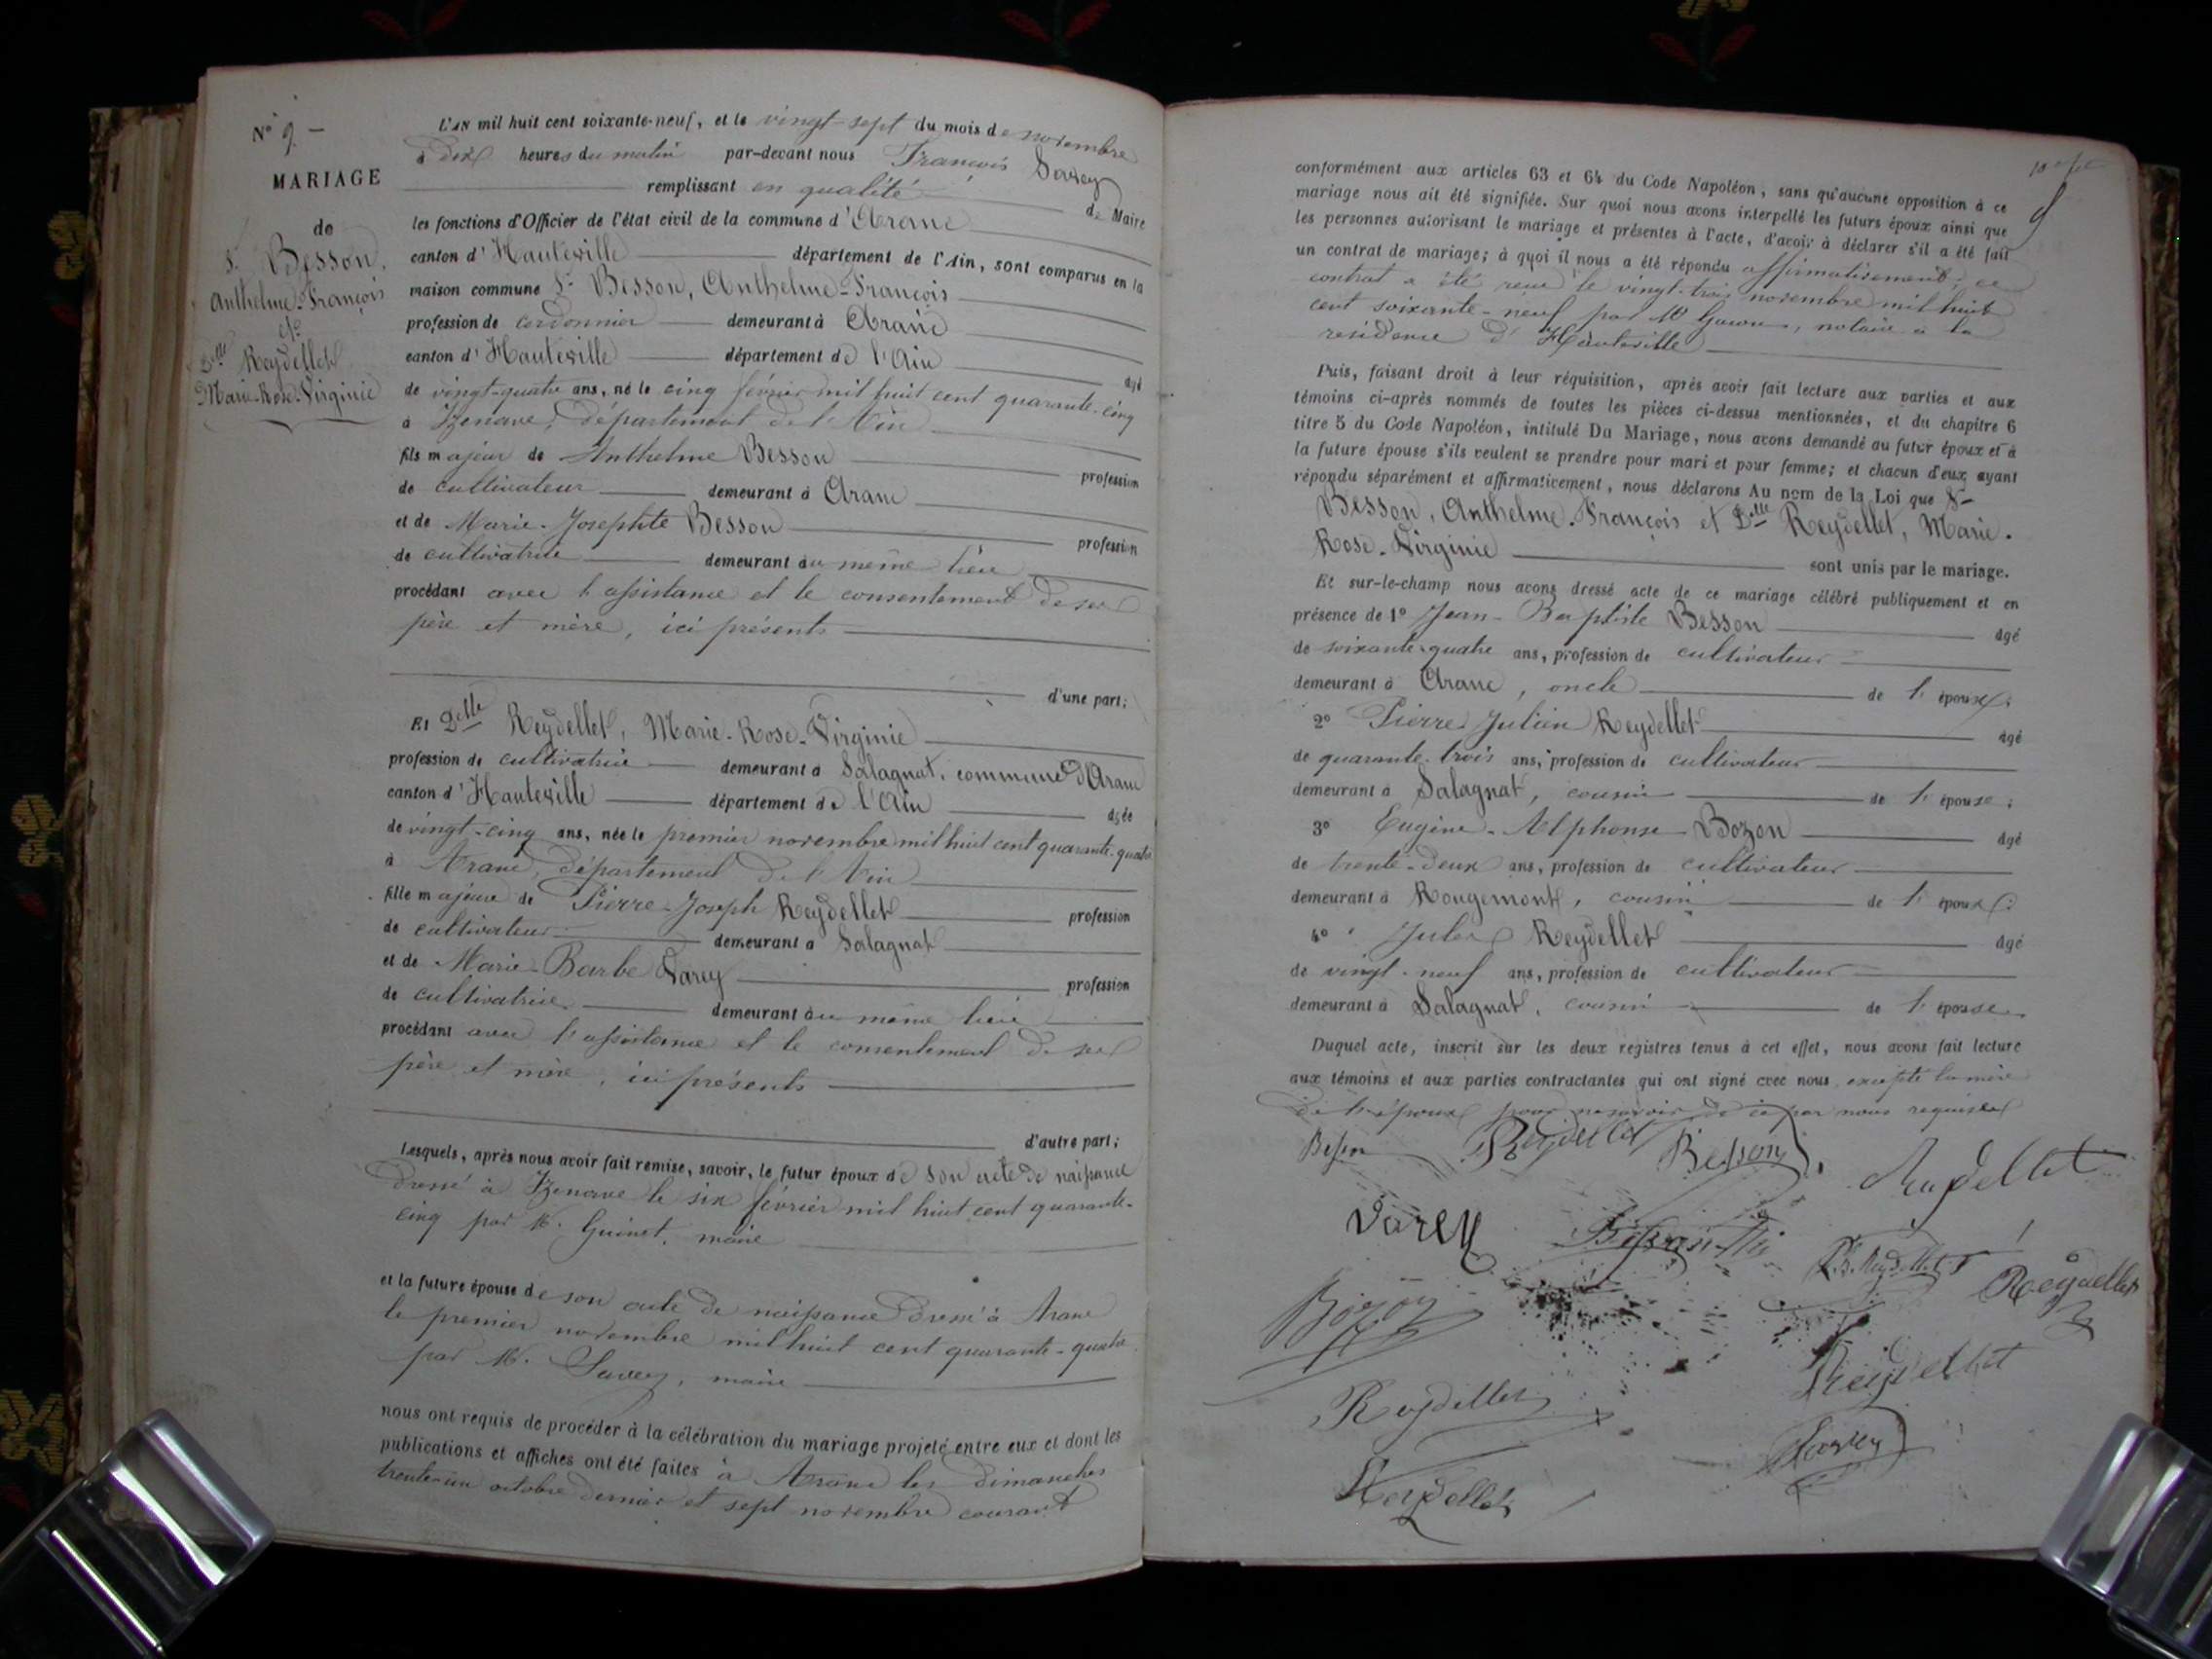 N° 9. –
MARIAGE
de
Sr Besson,
Anthelme-François
et
Delle Reydellet
Marie-Rose-Virginie
L'AN mil huit cent soixante-neuf, et le vingt-sept du mois de novembre
à dix heures du matin par-devant nous François Savey
remplissant en qualité de Maire
les fonctions d'Officier de l'état civil de la commune d'Aranc
canton d'Hauteville département de l'Ain, sont comparus en la
maison commune Sr Besson, Anthelme-François
profession de cordonnier demeurant à Aranc
canton d'Hauteville département de l'Ain âgé
de vingt-quatre ans, né le cinq février mil huit cent quarante-cinq
à Izenave, département de l'Ain
fils majeur de Anthelme Besson profession
de cultivateur demeurant à Aranc
et de Marie-Josephte Besson profession
de cultivatrice demeurant au même lieu
procédant avec l'assistance et le consentement de ses
père et mère, ici présents
d'une part;
Et Delle Reydellet, Marie-Rose-Virginie
profession de cultivatrice demeurant à Salagnat, commune d'Aranc
canton d'Hauteville département de l'Ain âgée
de vingt-cinq ans, née le premier novembre mil huit cent quarante-quatre
à Aranc, département de l'Ain
fille majeure de Pierre-Joseph Reydellet profession
de cultivateur demeurant à Salagnat
et de Marie-Barbe Varey profession
de cultivatrice demeurant au même lieu
procédant avec l'assistance et le consentement de ses
père et mère, ici présents
d'autre part;
Lesquels, après nous avoir fait remise, savoir, le futur époux de son acte de naissance
dressé à Izenave le six février mil huit cent quarante-
cinq par M. Guinet, maire
et la future épouse de son acte de naissance dressé à Aranc
le premier novembre mil huit cent quarante-quatre
par M. Savey, maire
nous ont requis de procéder à la célébration du mariage projeté entre eux et dont les
publications et affiches ont été faites à Aranc les dimanches
trente-un octobre dernier et sept novembre courant
conformément aux articles 63 et 64 du Code Napoléon, sans qu'aucune opposition à ce
mariage nous ait été signifiée. Sur quoi nous avons interpellé les futurs époux ainsi que
les personnes autorisant le mariage et présentes à l'acte, d'avoir à déclarer s'il a été fait
un contrat de mariage; à quoi il nous a été répondu affirmativement; ce
contrat a été reçu le vingt-trois novembre mil huit
cent soixante-neuf par Me, notaire à la
résidence d'Hauteville
Puis, faisant droit à leur réquisition, après avoir fait lecture aux parties et aux
témoins ci-après nommés de toutes les pièces ci-dessus mentionnées, et du chapitre 6
titre 5 du Code Napoléon, intitulé Du Mariage, nous avons demandé au futur époux et à
la future épouse s'ils veulent se prendre pour mari et pour femme; et chacun d'eux ayant
répondu séparément et affirmativement, nous déclarons Au nom de la Loi que Sr
Besson, Anthelme-François et Delle Reydellet, Marie-
Rose-Virginie sont unis par le mariage.
Et sur-le-champ nous avons dressé acte de ce mariage célébré publiquement et en
présence de 1° Jean-Baptiste Besson âgé
de soixante-quatre ans, profession de cultivateur
demeurant à Aranc, oncle de l'époux;
2° Pierre Julien Reydellet âgé
de quarante-trois ans, profession de cultivateur
demeurant à Salagnat, cousin de l'épouse;
3° Eugène-Alphonse Bozon âgé
de trente-deux ans, profession de cultivateur
demeurant à Rougemont, cousin de l'époux;
4° Jules Reydellet âgé
de vingt-neuf ans, profession de cultivateur
demeurant à Salagnat, cousin de l'épouse.
Duquel acte, inscrit sur les deux registres tenus à cet effet, nous avons fait lecture
aux témoins et aux parties contractantes qui ont signé avec nous, excepté la mère
de l'époux pour ne savoir de ce par nous requise
Besson Reydellet Besson Reydellet
Varey
Reydellet
Bozon
Reydellet
Reydellet
Savey
Reydellet